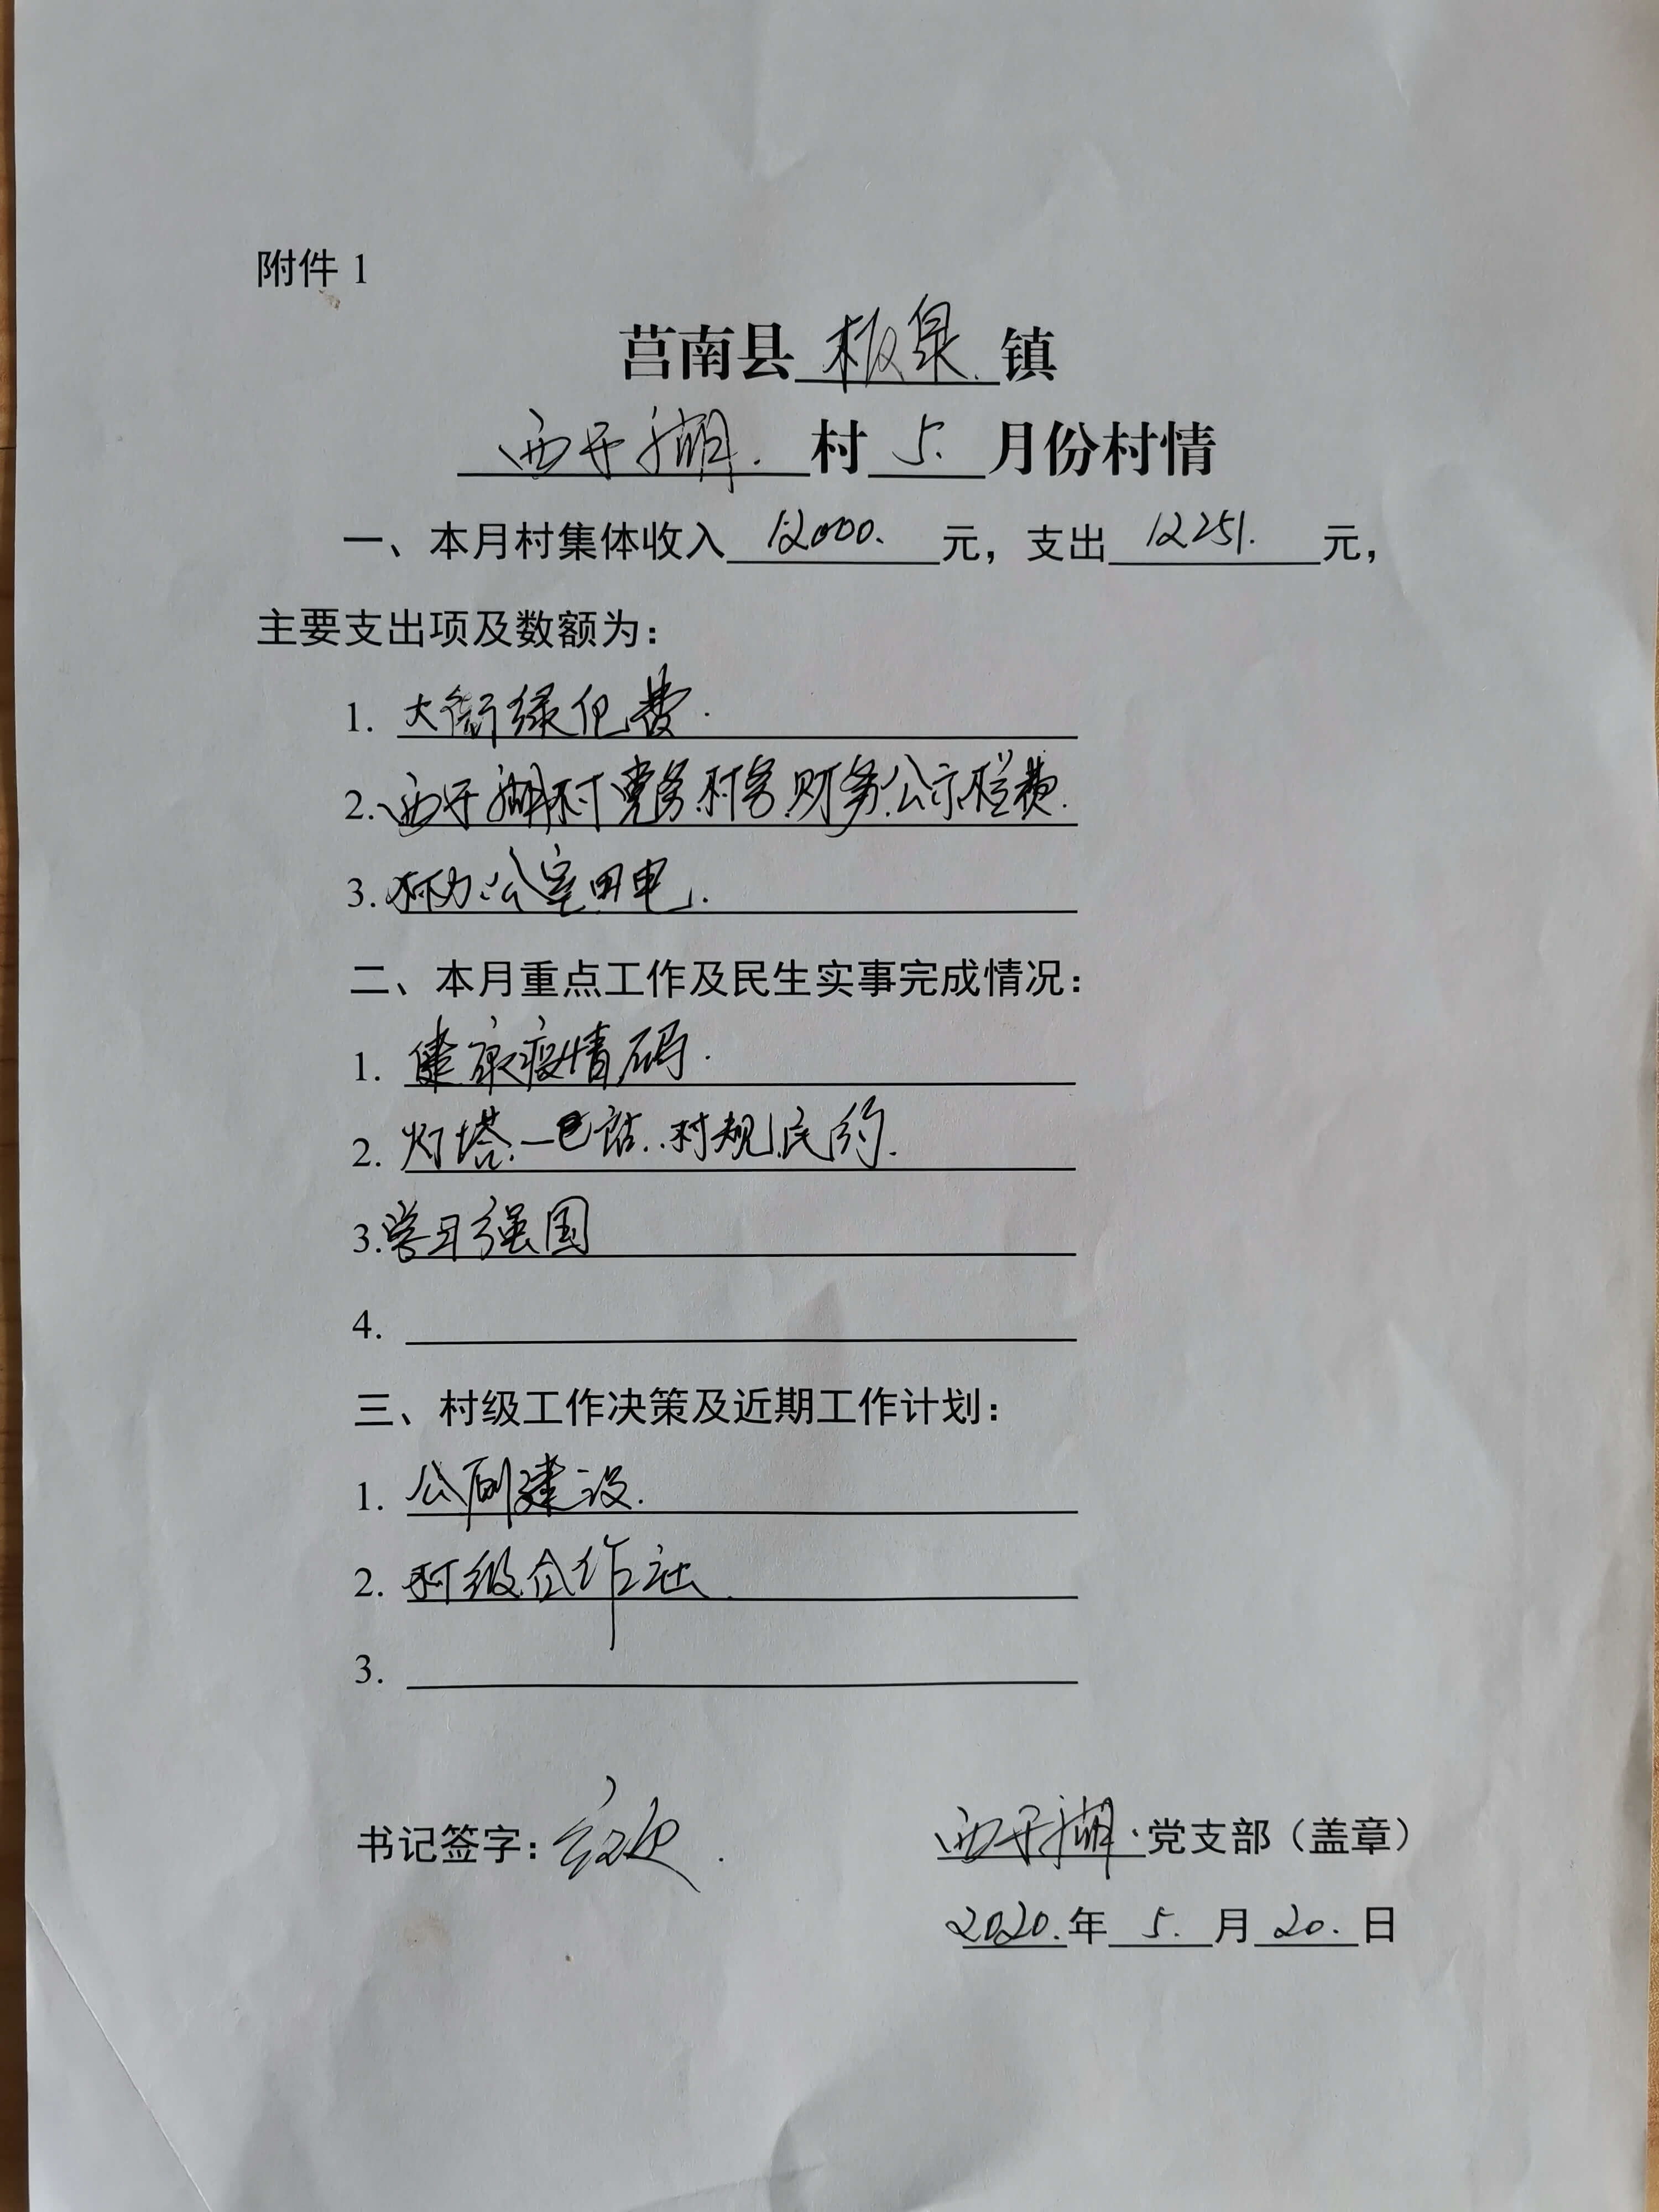 附件 1
莒南县 板泉 镇
西于湖 村 5 月份村情
一、本月村集体收入 12000. 元，支出 12251. 元，
主要支出项及数额为：
1. 大街绿化费.
2. 西于湖村党务.村务.财务.公示栏费.
3. 村办公室用电.
二、本月重点工作及民生实事完成情况：
1. 健康疫情码.
2. 灯塔.一包站.村规民约.
3. 学习强国
4.
三、村级工作决策及近期工作计划：
1. 公厕建设.
2. 村级合作社.
3.
书记签字：
西于湖.党支部（盖章）
2020.年 5. 月 20. 日